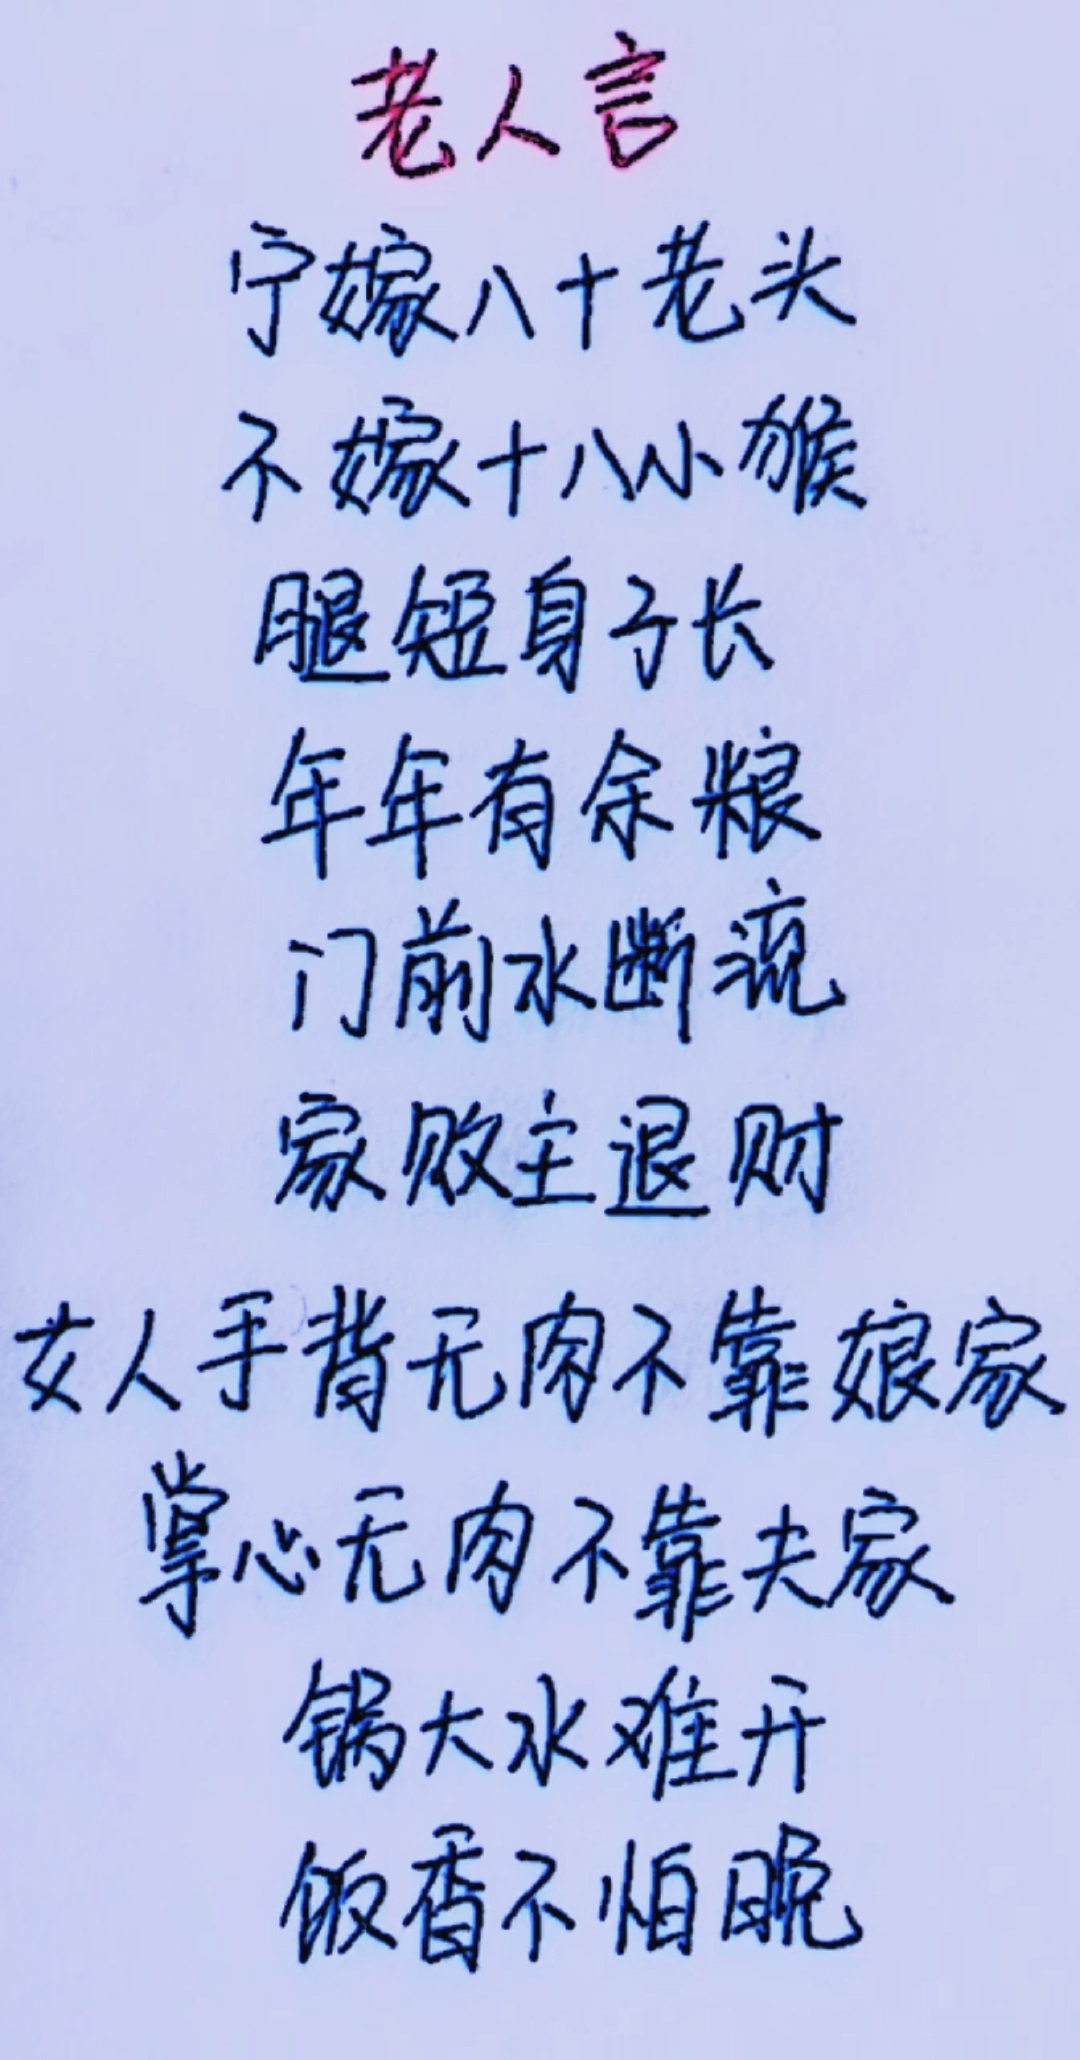 老人言
宁嫁八十老头
不嫁十八小猴
腿短身子长
年年有余粮
门前水断流
家败主退财
女人手背无肉不靠娘家
掌心无肉不靠夫家
锅大水难开
饭香不怕晚